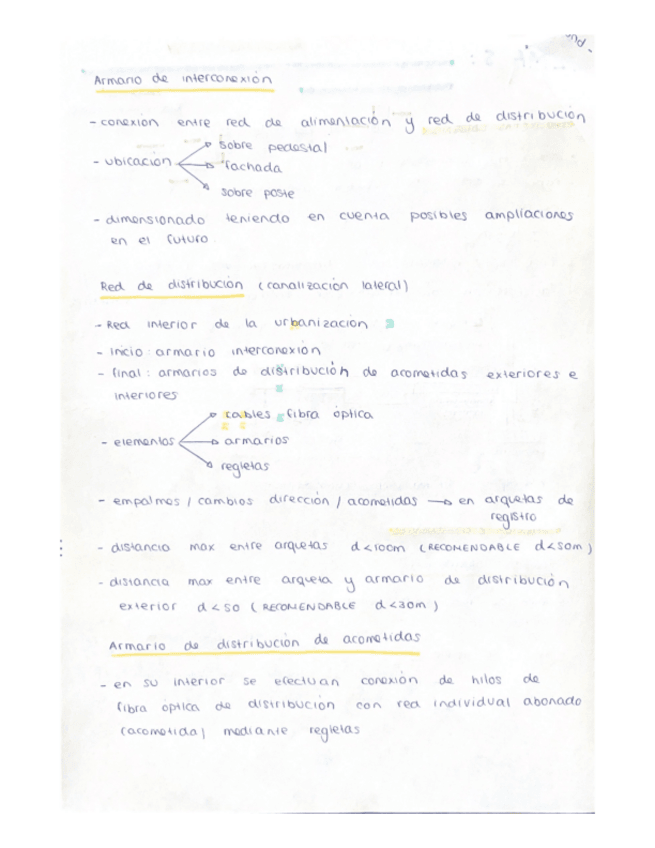 Armario de interconexión
- conexión entre red de alimentación y red de distribución
- ubicación → sobre pedestal
→ fachada
→ sobre poste
- dimensionado teniendo en cuenta posibles ampliaciones
en el futuro
Red de distribución (canalización lateral)
- Red interior de la urbanización
- inicio: armario interconexión
- final: armarios de distribución de acometidas exteriores e
interiores
- elementos → cables fibra óptica
→ armarios
→ regletas
- empalmes / cambios dirección / acometidas → en arquetas de
registro
- distancia max entre arquetas d<100m (RECOMENDABLE d<50m)
- distancia max entre arqueta y armario de distribución
exterior d<50 (RECOMENDABLE d<30m)
Armario de distribución de acometidas
- en su interior se efectuan conexión de hilos de
fibra óptica de distribución con red individual abonado
(acometida) mediante regletas